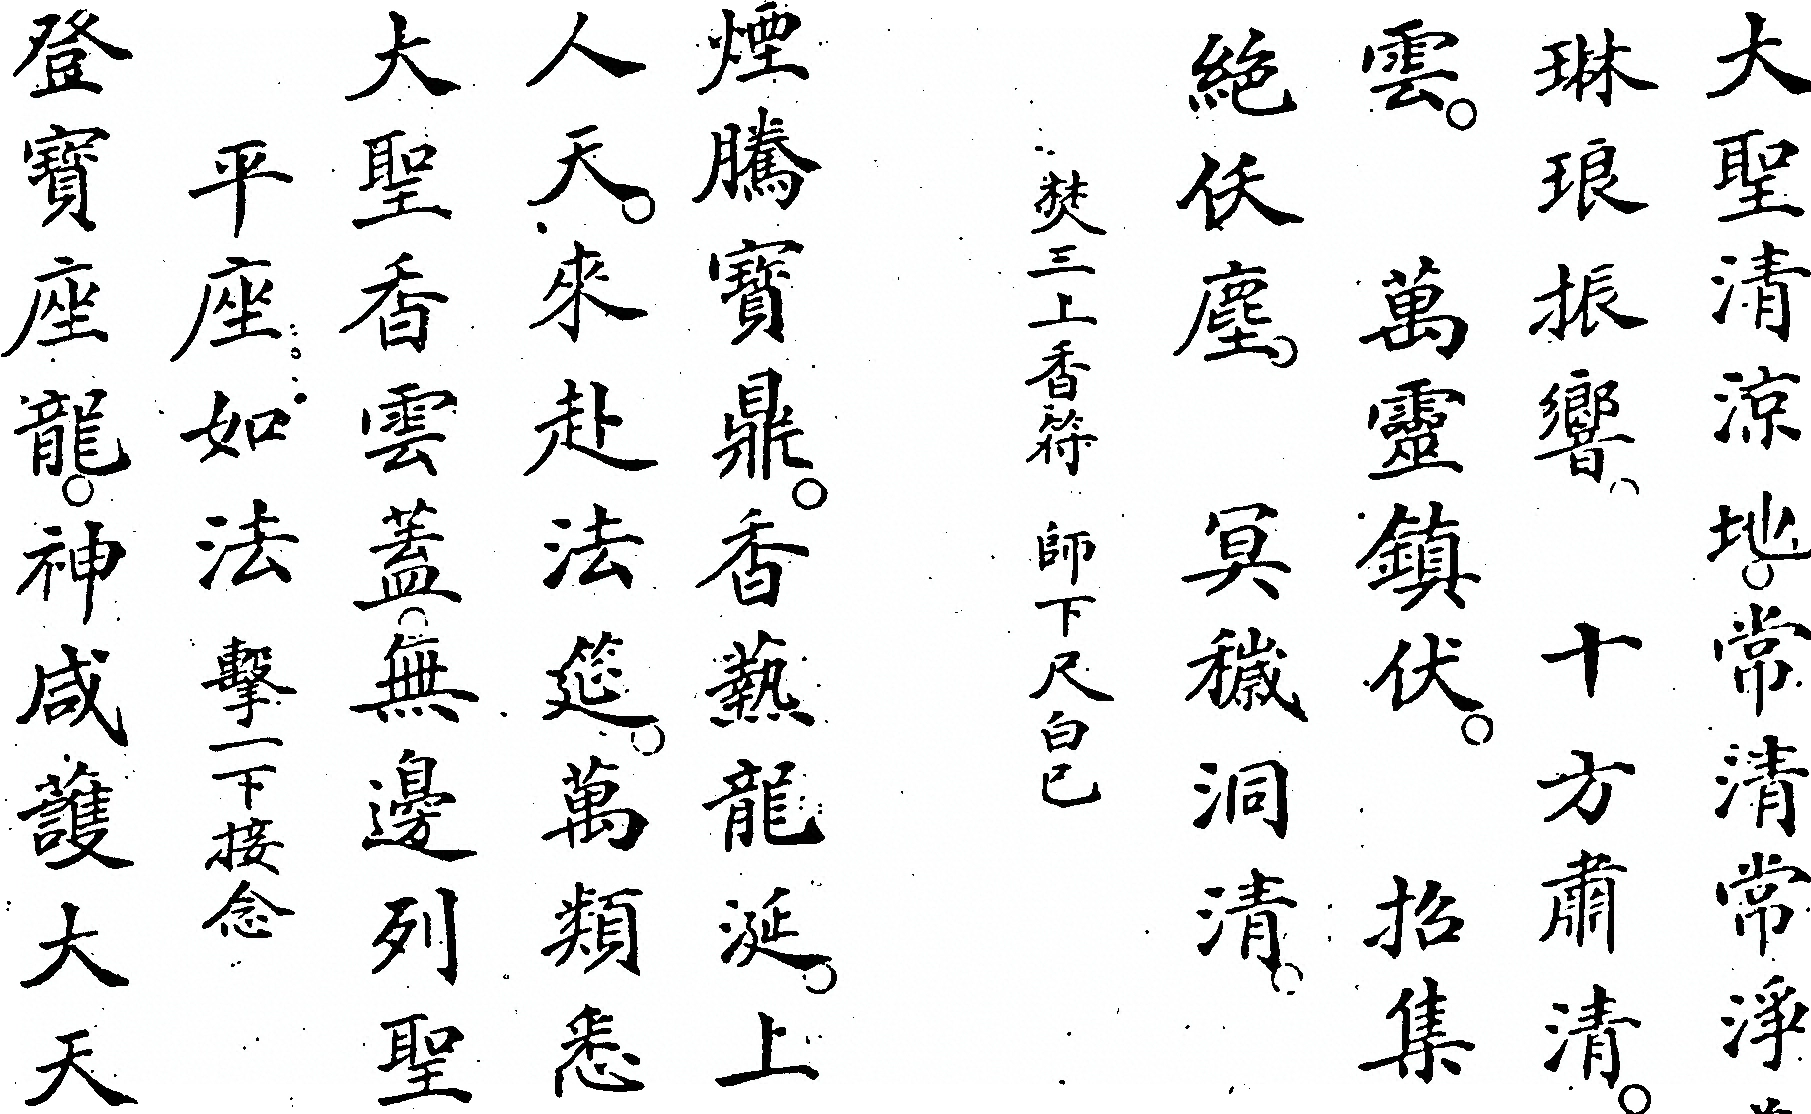 大聖清涼地。常清常淨
琳琅振響。 十方肅清。
雲。 萬靈鎮伏。 招集
絕妖塵。 冥穢洞清。
焚三上香符 師下尺白已
煙騰寶鼎。香爇龍涎。上
人天。來赴法筵。萬類悉
大聖香雲蓋。無邊列聖
平座如法擊一下接念
登寶座龍。神咸護大天